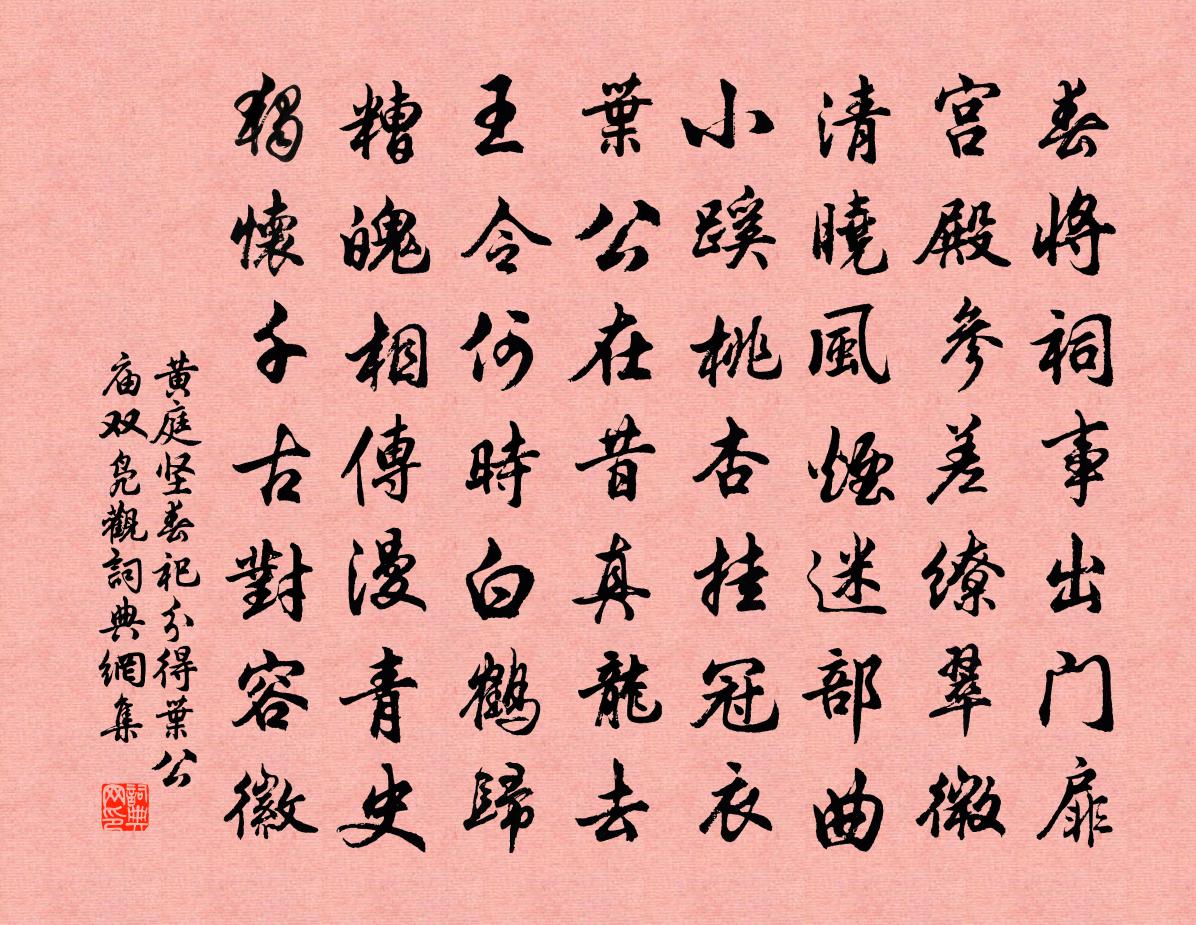 春將祠事出门扉
宫殿參差缭翠微
清曉風煙迷部曲
小蹊桃杏挂冠衣
葉公在昔真龍去
王令何時白鶴歸
糟魄相傳漫青史
獨懷千古對容徽
黄庭坚春祀分得葉公
庙双凫觀詞典網集
詞典网印